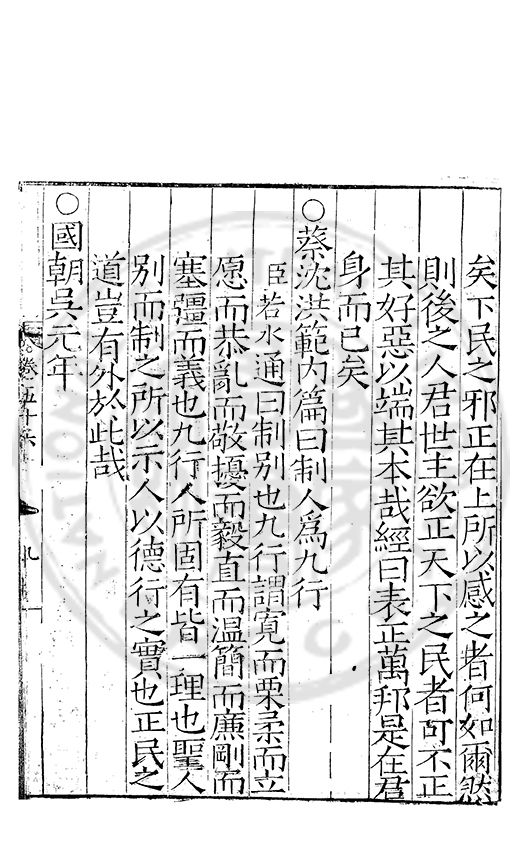 矣下民之邪正在上所以感之者何如爾然
則後之人君世主欲正天下之民者可不正
其好惡以端其本哉經曰表正萬邦是在君
身而已矣
○蔡沈洪範內篇曰制人爲九行
臣若水通曰制別也九行謂寬而栗柔而立
愿而恭亂而敬擾而毅直而溫簡而廉剛而
塞彊而義也九行人所固有皆一理也聖人
別而制之所以示人以德行之實也正民之
道豈有外於此哉
○國朝吳元年
卷五十六
九